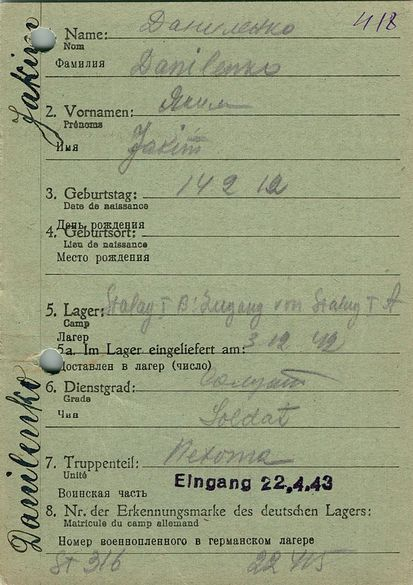 418
Даниленко
1. Name:
Nom
Фамилия
Danilenko
Яким
2. Vornamen:
Prénoms
Имя
Jakim
3. Geburtstag: 14 2 12
Date de naissance
День рождения
4. Geburtsort:
Lieu de naissance
Место рождения
5. Lager: Stalag I B: Zugang von Stalag I A
Camp
Лагер
5a. Im Lager eingeliefert am: 3.12 42
Доставлен в лагер (число)
6. Dienstgrad: Солдат
Grade
Чин
Soldat
7. Truppenteil: Пехота
Unité
Eingang 22.4.43
Воинская часть
8. Nr. der Erkennungsmarke des deutschen Lagers:
Matricule du camp allemand
Номер военнопленного в германском лагере
St 316 22415
Jakim
Danilenko